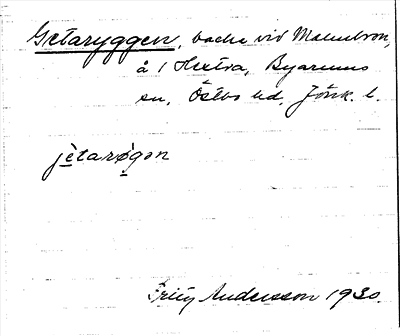 Getaryggen, backe vid Malmbron,
å / Hestra, Byarums
sn, Östbo hd, Jönk. l.
jetarøgən
Fritz Andersson 1930.